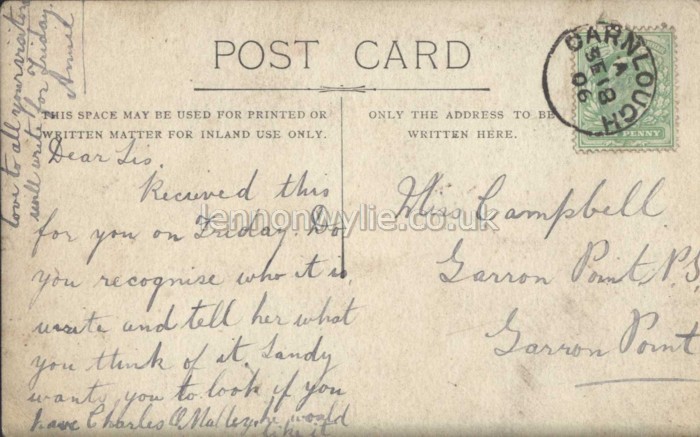 love to all your visitors
will write for Friday.
Annie
POST CARD
THIS SPACE MAY BE USED FOR PRINTED OR
WRITTEN MATTER FOR INLAND USE ONLY.
ONLY THE ADDRESS TO BE
WRITTEN HERE.
CARNLOUGH
A
SE 18
06
PENNY
Dear Sis.
Recieved this
for you on Friday. Do
you recognise who it is,
write and tell her what
you think of it. Sandy
wants you to look if you
have Charles O'Malley, he would
like it
Miss Campbell
Garron Point P.S.
Garron Point
lennonwylie.co.uk